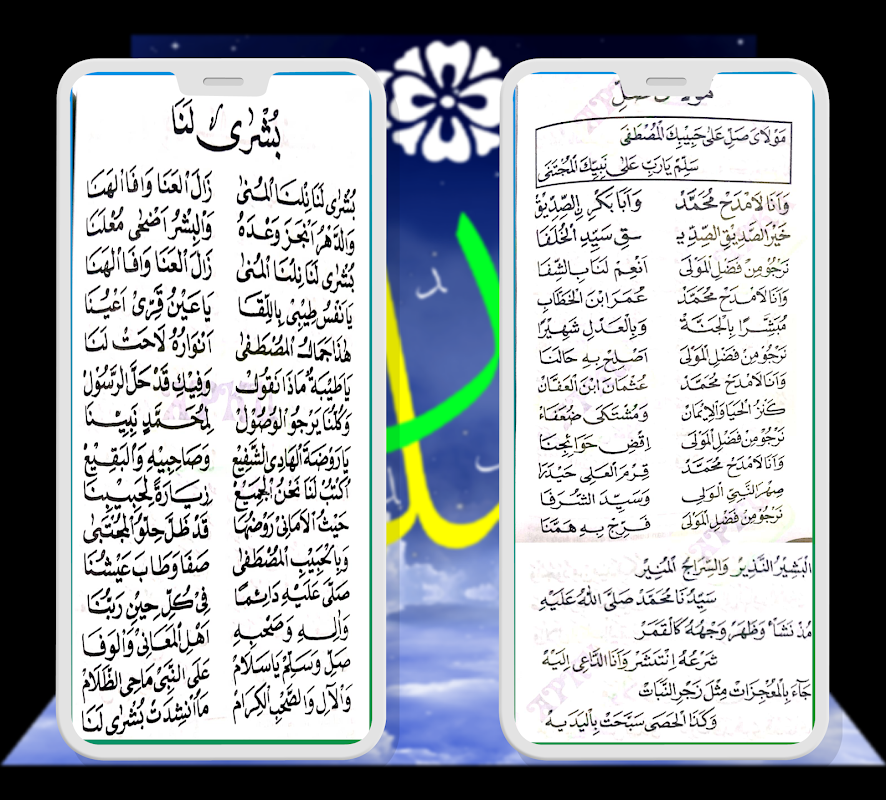 بُشْرٰى لَنَا
بُشْرٰى لَنَا نِلْنَا الْمُنٰى زَالَ الْعَنَا وَافَا الْهَنَا
وَالدَّهْرُ اَنْجَزَ وَعْدَهُ وَالْبِشْرُ اَضْحٰى مُعْلَنَا
بُشْرٰى لَنَا نِلْنَا الْمُنٰى زَالَ الْعَنَا وَافَا الْهَنَا
يَانَفْسُ طِيْبِىْ بِاللِّقَا يَاعَيْنُ قَرِّىْ اَعْيُنَا
هٰذَا جَمَالُ الْمُصْطَفٰى اَنْوَارُهُ لَاحَتْ لَنَا
يَاطَيْبَةُ مَاذَا نَقُوْلُ وَفِيْكِ قَدْ حَلَّ الرَّسُوْلُ
وَكُلُّنَا يَرْجُو الْوُصُوْلَ لِمُحَمَّدٍ نَبِيِّنَا
يَارَوْضَةَ الْهَادِى الشَّفِيْعِ وَصَاحِبَيْهِ وَالْبَقِيْعِ
اُكْتُبْ لَنَا نَحْنُ الْجَمِيْعَ زِيَارَةً لِحَبِيْبِنَا
حَيْثُ الْاَمَانِىْ رَوْضُهَا قَدْ ظَلَّ حِلْوُ الْمُجْتَنٰى
وَبِالْحَبِيْبِ الْمُصْطَفٰى صَفَا وَطَابَ عَيْشُنَا
صَلّٰى عَلَيْهِ دَائِمًا فِىْ كُلِّ حِيْنٍ رَبُّنَا
وَاٰلِهِ وَصَحْبِهِ اَهْلِ الْمَعَانِىْ وَالْوَفَا
صَلِّ وَسَلِّمْ يَاسَلَامُ عَلَى النَّبِىْ مَاحِى الظَّلَامْ
وَالْاٰلِ وَالصَّحْبِ الْكِرَامْ مَااُنْشِدَتْ بُشْرٰى لَنَا
مَوْلَاىَ صَلِّ عَلٰى حَبِيْبِكَ الْمُصْطَفَى
سَلِّمْ يَارَبِّ عَلٰى نَبِيِّكَ الْمُجْتَبَى
وَاَنَا لَامْدَحْ مُحَمَّدْ وَاَبَا بَكْرٍ بِالصِّدِّيْقْ
خَيْرَ الصَّدِيْقِ الصِّدِّيْ ـقِ سَيِّدِ الْخُلَفَا
نَرْجُوْ مِنْ فَضْلِ الْمَوْلَى اَنْعِمْ لَنَا بِالشِّفَا
وَاَنَا لَامْدَحْ مُحَمَّدْ عُمَرَ ابْنَ الْخَطَّابِ
مُبَشَّرًا بِالْجَنَّةْ وَبِالْعَدْلِ شَهِيْرًا
نَرْجُوْ مِنْ فَضْلِ الْمَوْلَى اَصْلِحْ بِهِ حَالَنَا
وَاَنَا لَامْدَحْ مُحَمَّدْ عُثْمَانَ ابْنَ الْعَفَّانْ
كَنْزُ الْحَيَا وَالْاِيْمَانْ وَمُشْتَكَى ضُعَفَاءْ
نَرْجُوْ مِنْ فَضْلِ الْمَوْلَى اِقْضِ حَوَائِجَنَا
وَاَنَا لَامْدَحْ مُحَمَّدْ قِرْمَ الْعَلِى حَيْدَرَا
صِهْرَ النَّبِىْ الْوَلِى وَسَيِّدَ الشُّرَفَا
نَرْجُوْ مِنْ فَضْلِ الْمَوْلَى فَرِّجْ بِهِ هَمَّنَا
اَلْبَشِيْرُ النَّذِيْرُ وَالسِّرَاجُ الْمُنِيْرُ
سَيِّدُنَا مُحَمَّدْ صَلَّى اللّٰهُ عَلَيْهِ
مُذْ نَشَأْ وَظَهَرْ وَجْهُهُ كَالْقَمَرْ
شَرْعُهُ اِنْتَشَرْ وَاَنَا الدَّاعِى اِلَيْهْ
جَاءَ بِالْمُعْجِزَاتْ مِثْلَ زَجْرِ النَّبَاتْ
وَكَذَا الْحَصَى سَبَّحَتْ بِالْيَدَيْهْ